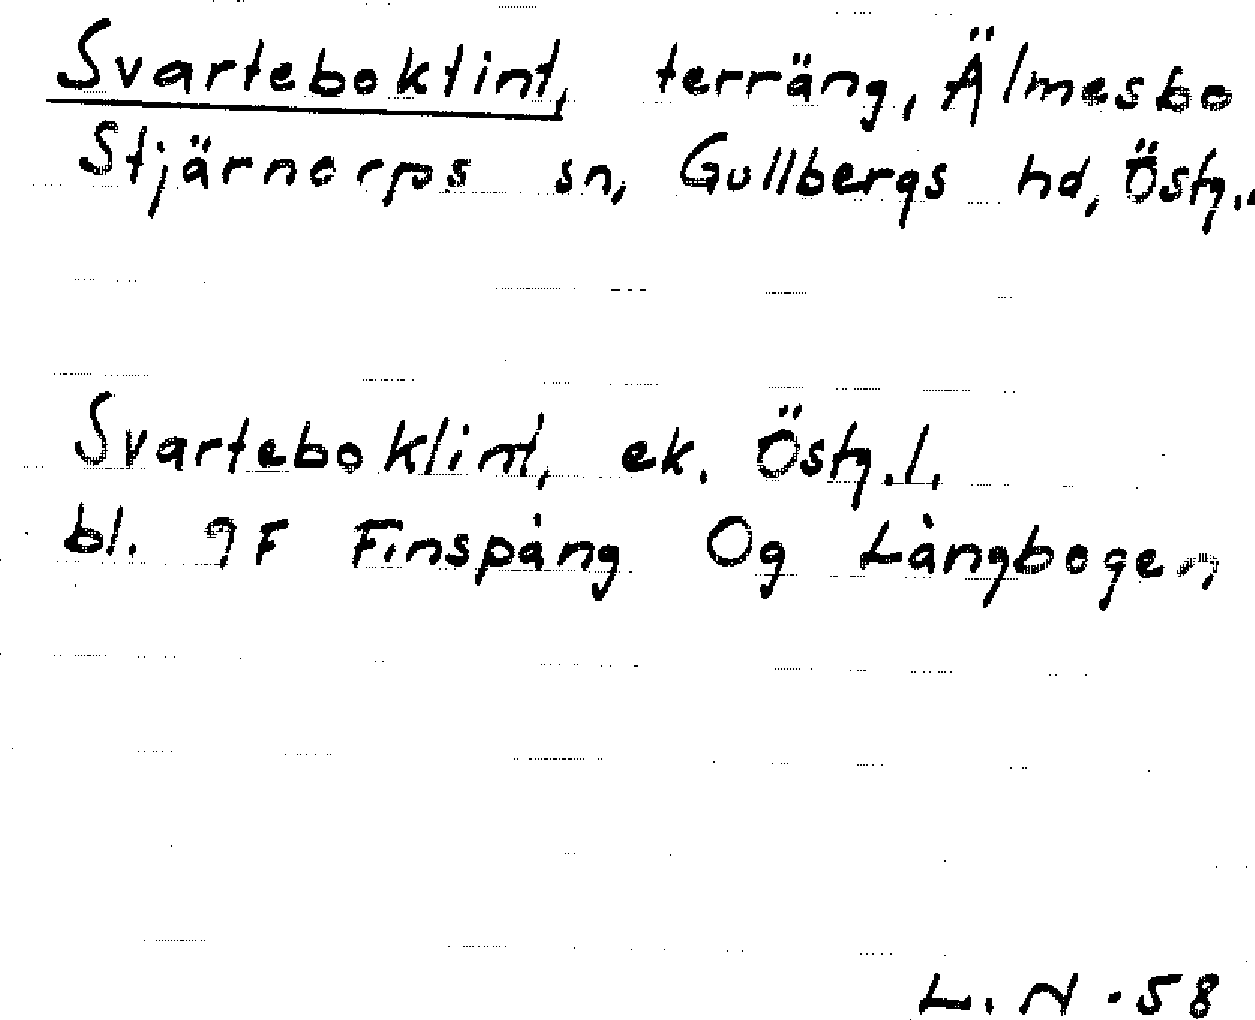 Svarteboklint, terräng, Älmesbo
Stjärnorps sn, Gullbergs hd, Östg..
Svarteboklint, ek. Östg.l.
bl. 9F Finspång Og Långbogen
L.N.58